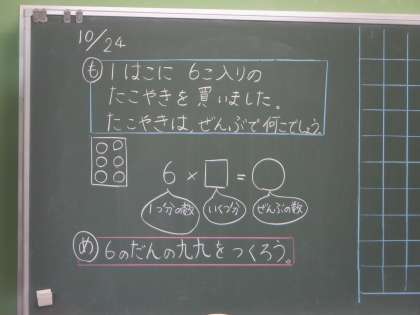 10/24
も 1はこに 6こ入りの
たこやきを買いました。
たこやきは、ぜんぶで何こでしょう。
6 × □ = ○
1つ分の数 いくつ分 ぜんぶの数
め 6のだんの九九をつくろう。